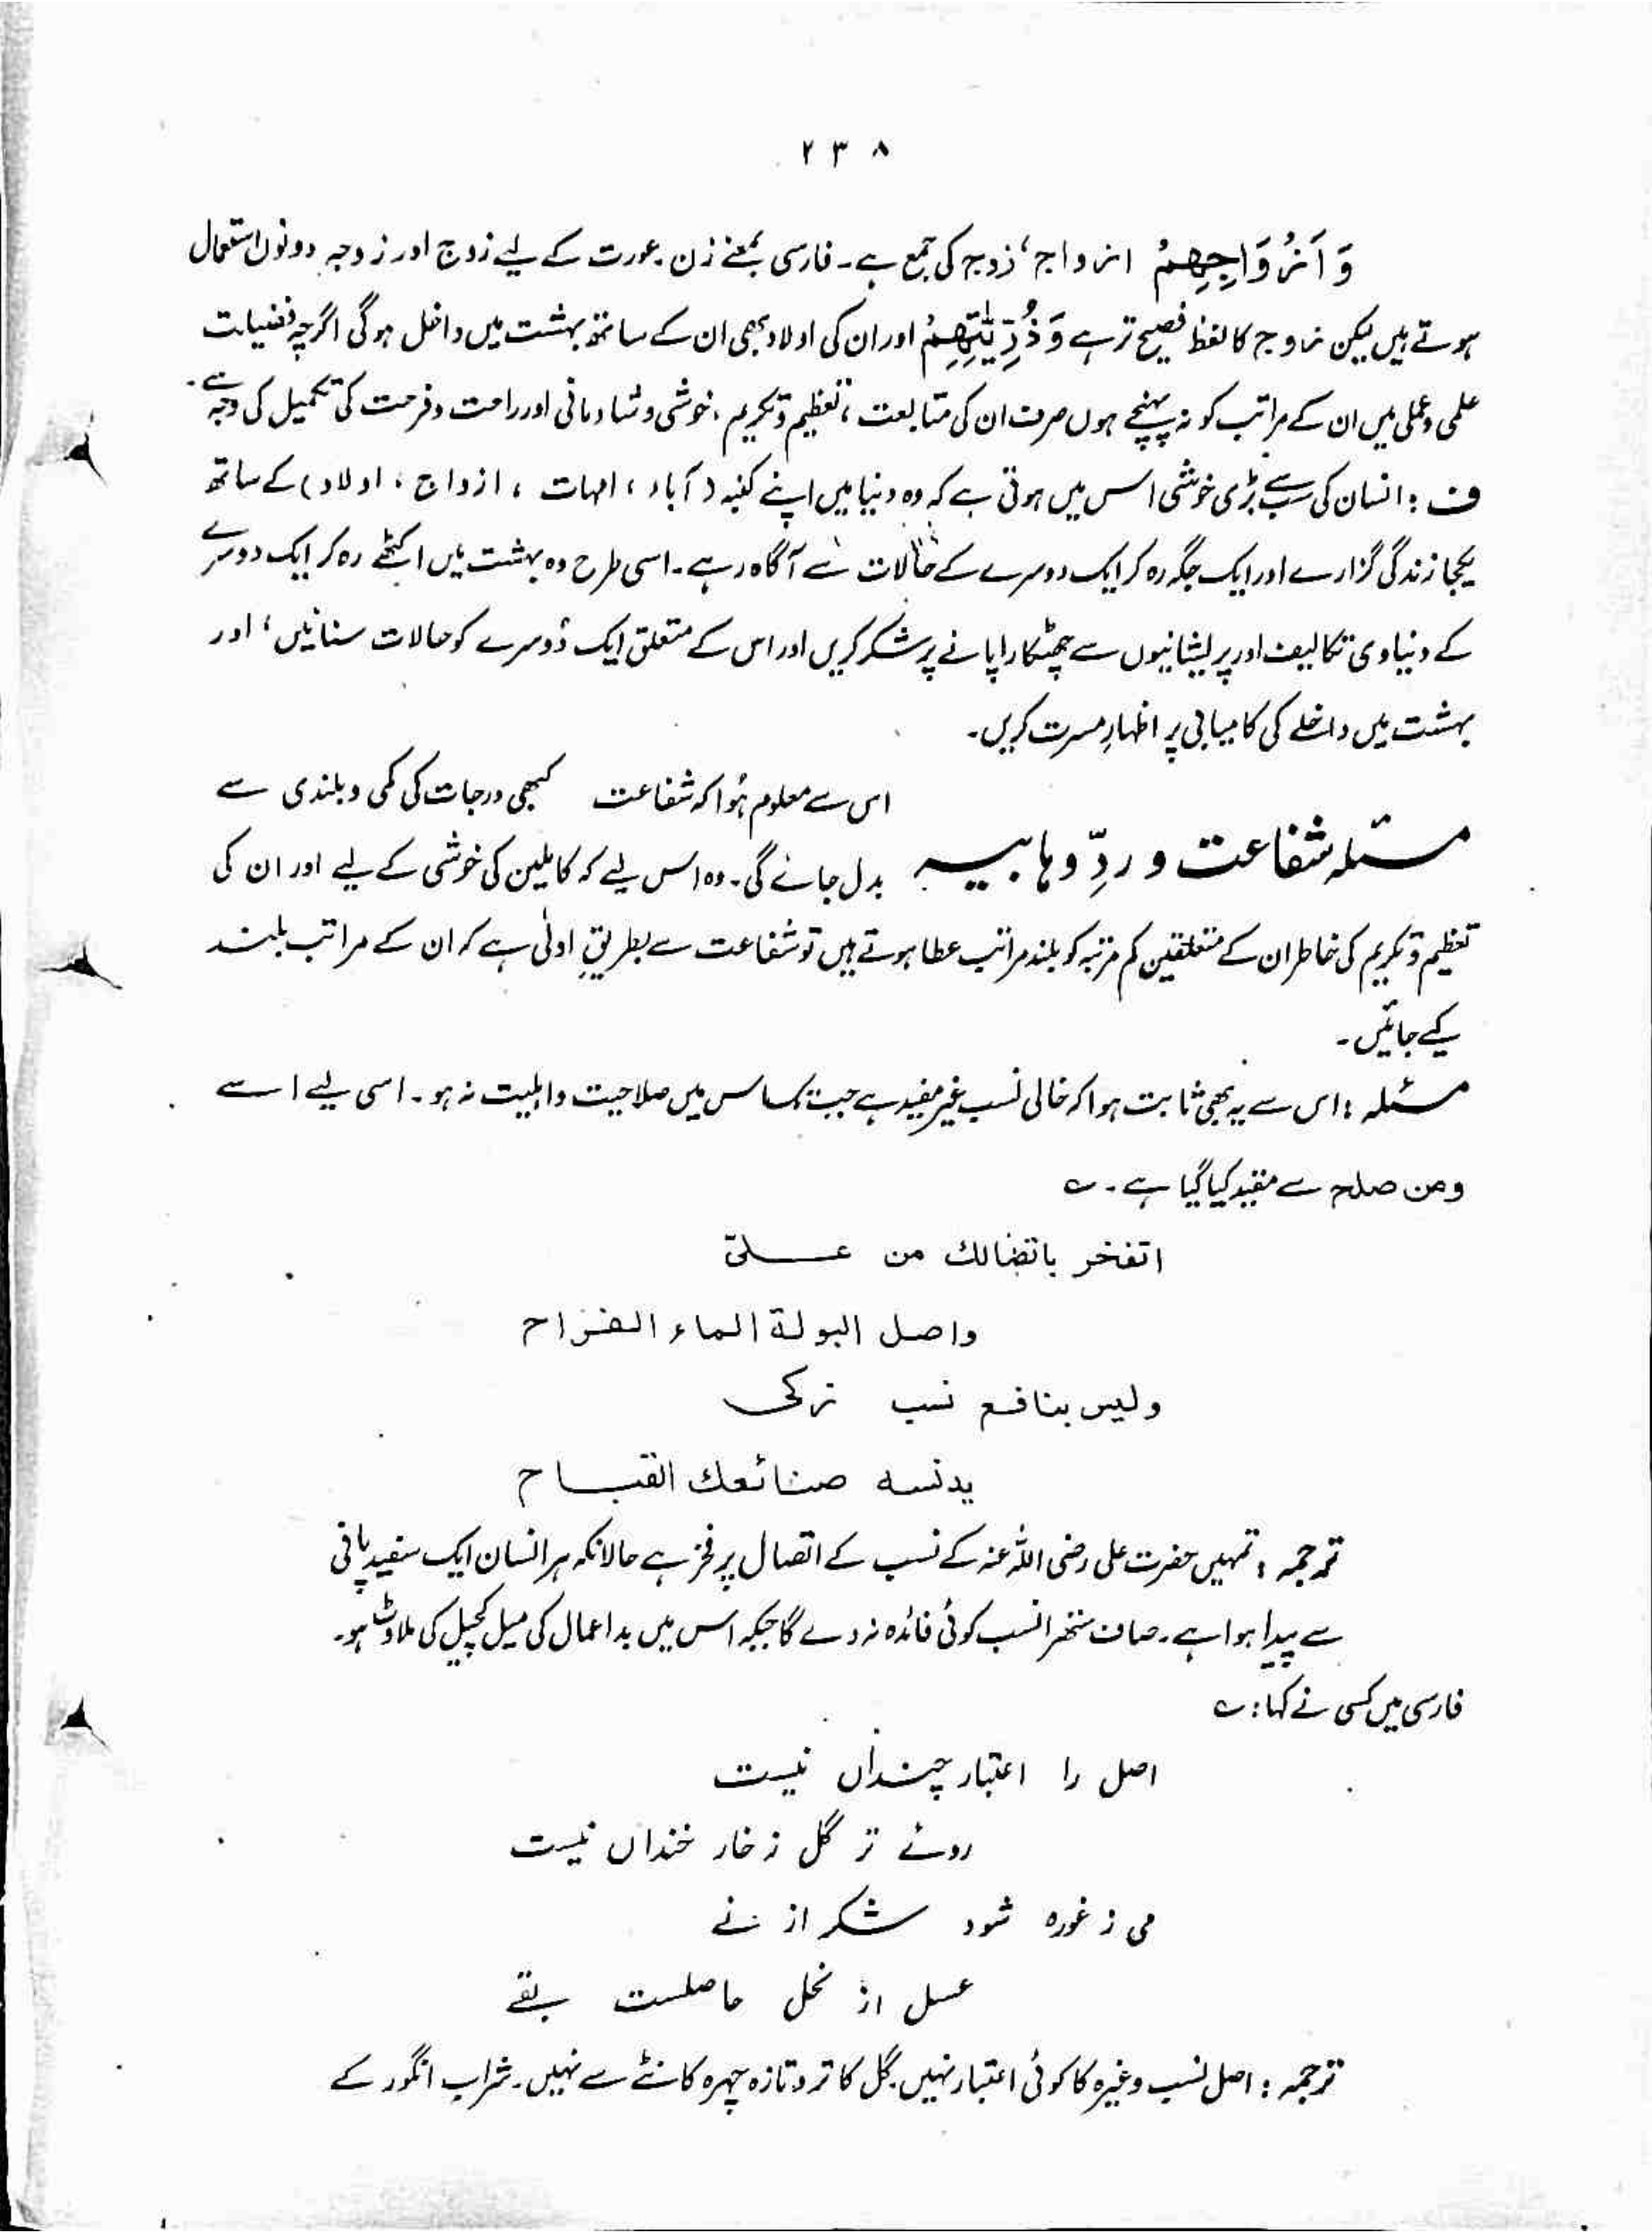 ۲۳۸
وَاَزْوَاجِهِمْ ازواج، زوج کی جمع ہے۔ فارسی بمعنے زن۔ عورت کے لیے زوج اور زوجہ دونوں استعمال
ہوتے ہیں لیکن زوج کا لفظ فصیح تر ہے وَذُرِّيّٰتِهِمْ اور ان کی اولاد بھی ان کے ساتھ بہشت میں داخل ہوگی اگرچہ فضیلت
علمی و عملی میں ان کے مراتب کو نہ پہنچے ہوں صرف ان کی متابعت، تعظیم و تکریم، خوشی و شادمانی اور راحت و فرحت کی تکمیل کی وجہ سے۔
ف: انسان کی سب سے بڑی خوشی اس میں ہوتی ہے کہ وہ دنیا میں اپنے کنبہ (آباء، امہات، ازواج، اولاد) کے ساتھ
یکجا زندگی گزارے اور ایک جگہ رہ کر ایک دوسرے کے حالات سے آگاہ رہے۔ اسی طرح وہ بہشت میں اکٹھے رہ کر ایک دوسرے
کے دنیاوی تکالیف اور پریشانیوں سے چھٹکارا پانے پر شکر کریں اور اس کے متعلق ایک دوسرے کو حالات سنائیں، اور
بہشت میں داخلے کی کامیابی پر اظہارِ مسرت کریں۔
مسئلہ شفاعت و ردِّ وہابیہ
اس سے معلوم ہُوا کہ شفاعت کبھی درجات کی کمی و بلندی سے
بدل جائے گی۔ وہ اس لیے کہ کاملین کی خوشی کے لیے اور ان کی
تعظیم و تکریم کی خاطر ان کے متعلقین کم مرتبہ کو بلند مراتب عطا ہوتے ہیں تو شفاعت سے بطریقِ اولیٰ ہے کہ ان کے مراتب بلند
کیے جائیں۔
مسئلہ: اس سے یہ بھی ثابت ہوا کہ خالی نسب غیر مفید ہے جب تک اس میں صلاحیت و اہلیت نہ ہو۔ اسی لیے اسے
ومن صلح سے مقید کیا گیا ہے۔ ؎
اتفخر باتضالك من علیّ
واصل البولة الماء القراح
وليس بنافع نسب زكی
يدنسه صنائعك القباح
ترجمہ: تمہیں حضرت علی رضی اللہ عنہ کے نسب کے اتصال پر فخر ہے حالانکہ ہر انسان ایک سفید پانی
سے پیدا ہوا ہے۔ صاف ستھرا نسب کوئی فائدہ نہ دے گا جبکہ اس میں بد اعمال کی میل کچیل کی ملاوٹ ہو۔
فارسی میں کسی نے کہا: ؎
اصل را اعتبار چنداں نیست
روئے تر گل ز خار خنداں نیست
می ز غورہ شود شکر از نے
عسل از نحل حاصلست بقے
ترجمہ: اصل نسب وغیرہ کا کوئی اعتبار نہیں۔ گل کا تر و تازہ چہرہ کانٹے سے نہیں۔ شراب انگور کے